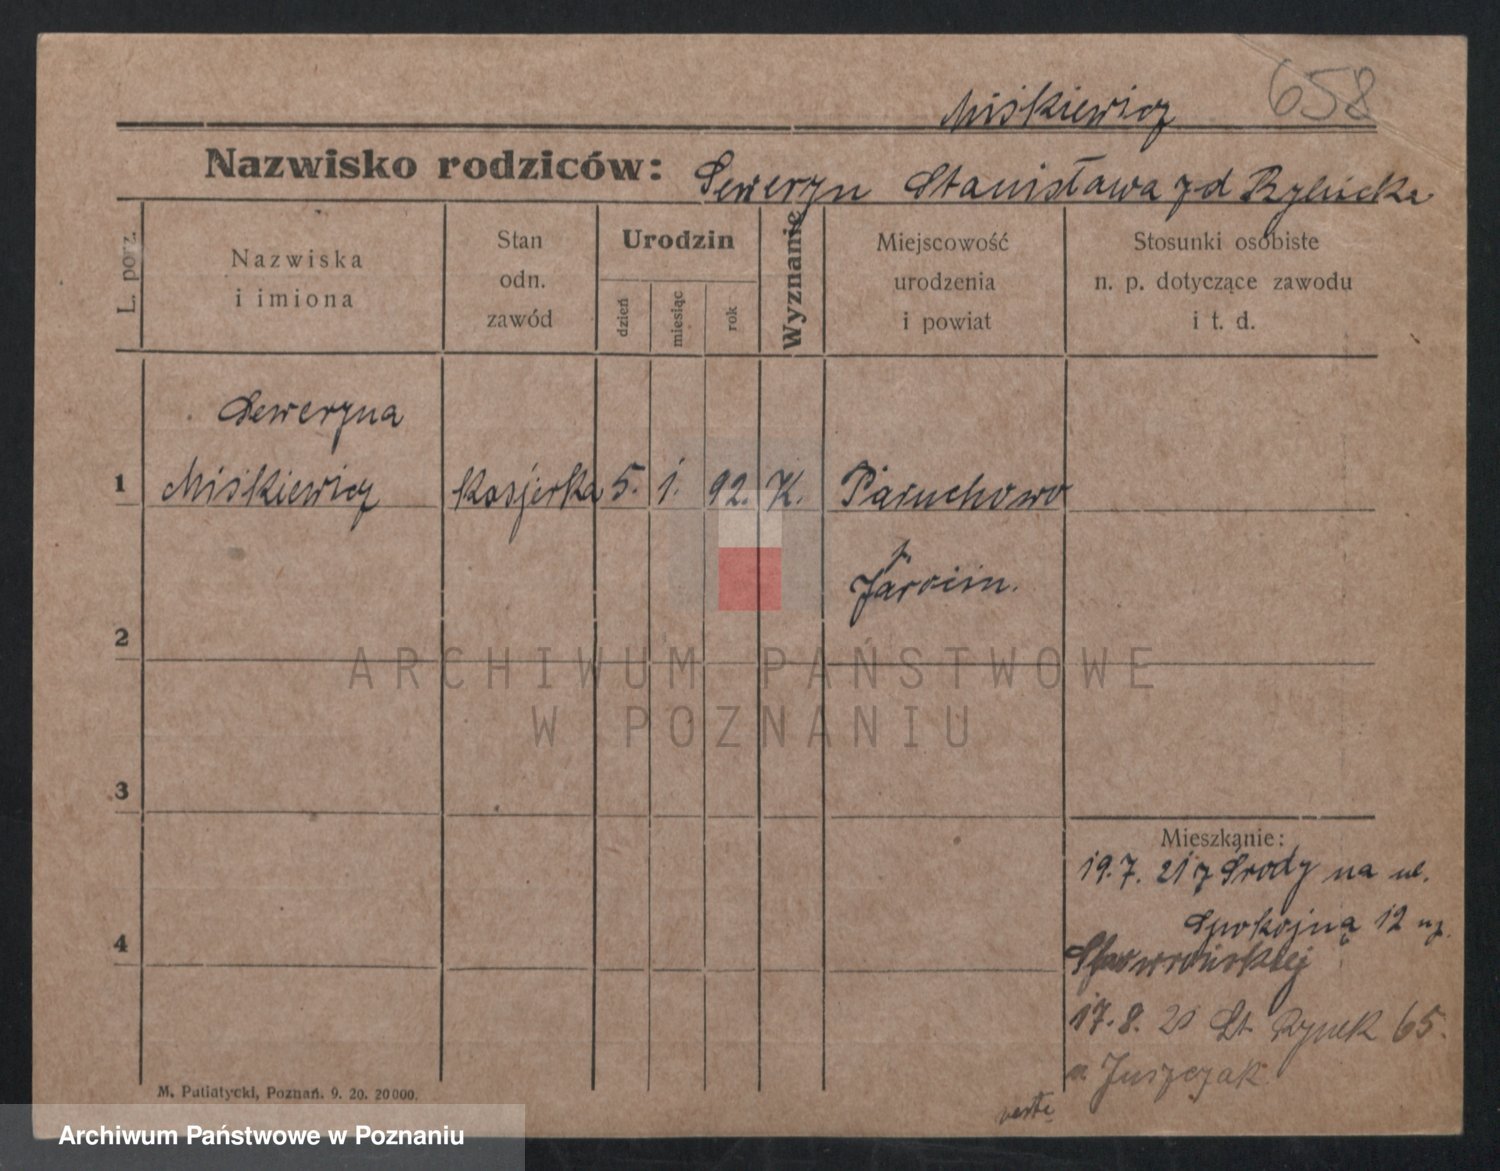 658
Miśkiewicz
Nazwisko rodziców: Seweryn Stanisława zd Rybicka
L. porz.
Nazwiska
i imiona
Stan
odn.
zawód
Urodzin
dzień
miesiąc
rok
Wyznanie
Miejscowość
urodzenia
i powiat
Stosunki osobiste
n. p. dotyczące zawodu
i t. d.
Seweryna
1 Miśkiewicz kasjerka 5. 1. 92. K. Paruchowo
p.
Jarocin.
2
3
4
Mieszkanie:
19.7. 21 z Środy na ul.
Spokojną 12 u p.
17.8. 21 St. Rynek 65.
u. Juszczak
verte
M. Putiatycki, Poznań. 9. 20. 20000.
ARCHIWUM PAŃSTWOWE
W POZNANIU
Archiwum Państwowe w Poznaniu